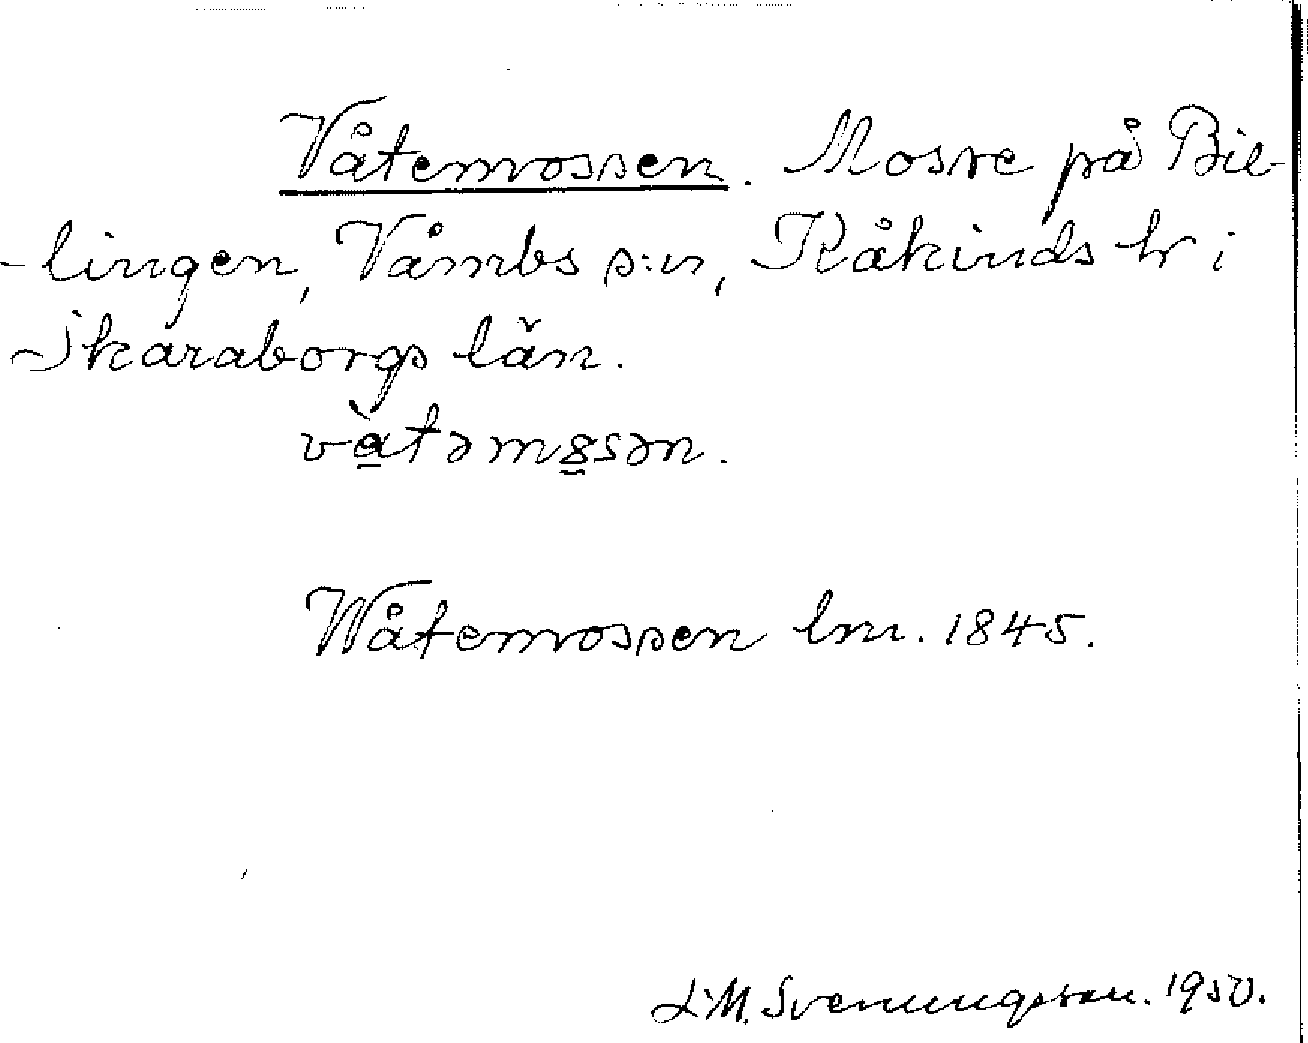 Våtemossen. Mosse på Bil-
-lingen, Våmbs s:n, Kåkinds hr i
Skaraborgs län.
vàtəm8sən.
Wåtemossen lm. 1845.
L.M. Svenungsson. 1950.